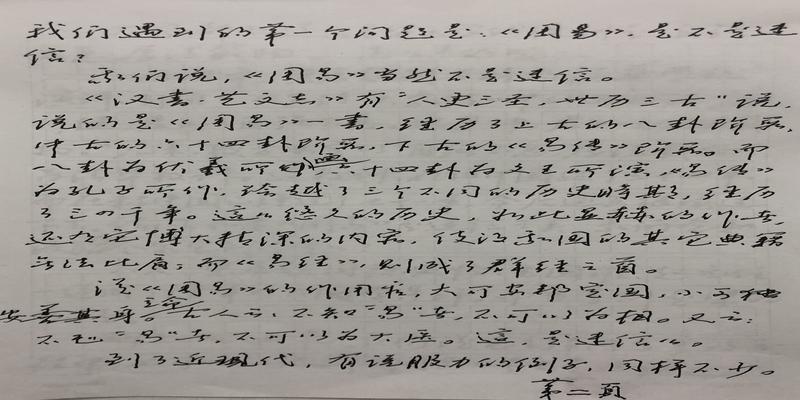 我们遇到的第一个问题是，《周易》，是不是迷
信？
我们说，《周易》当然不是迷信。
《汉书·艺文志》有“人更三圣，世历三古”说，
说的是《周易》一书，经历了上古的八卦阶段，
中古的六十四卦阶段，下古的《易经》阶段。而
八卦为伏羲所画，六十四卦为文王所演，《易经》
为孔子所作，跨越了三个不同的历史時期，经历
了三四千年。這么悠久的历史，如此显赫的作者，
还有它博大精深的内容，使得我国的其它典籍
无法比肩；而《易经》，则成了群经之首。
说《周易》的作用就，大可安邦定国，小可独
善其身。古人云：不知“易”者，不可以为相。又云：
不知“易”者，不可以为大医。這，是迷信么。
到了近現代，有说服力的例子，同样不少。
第二頁